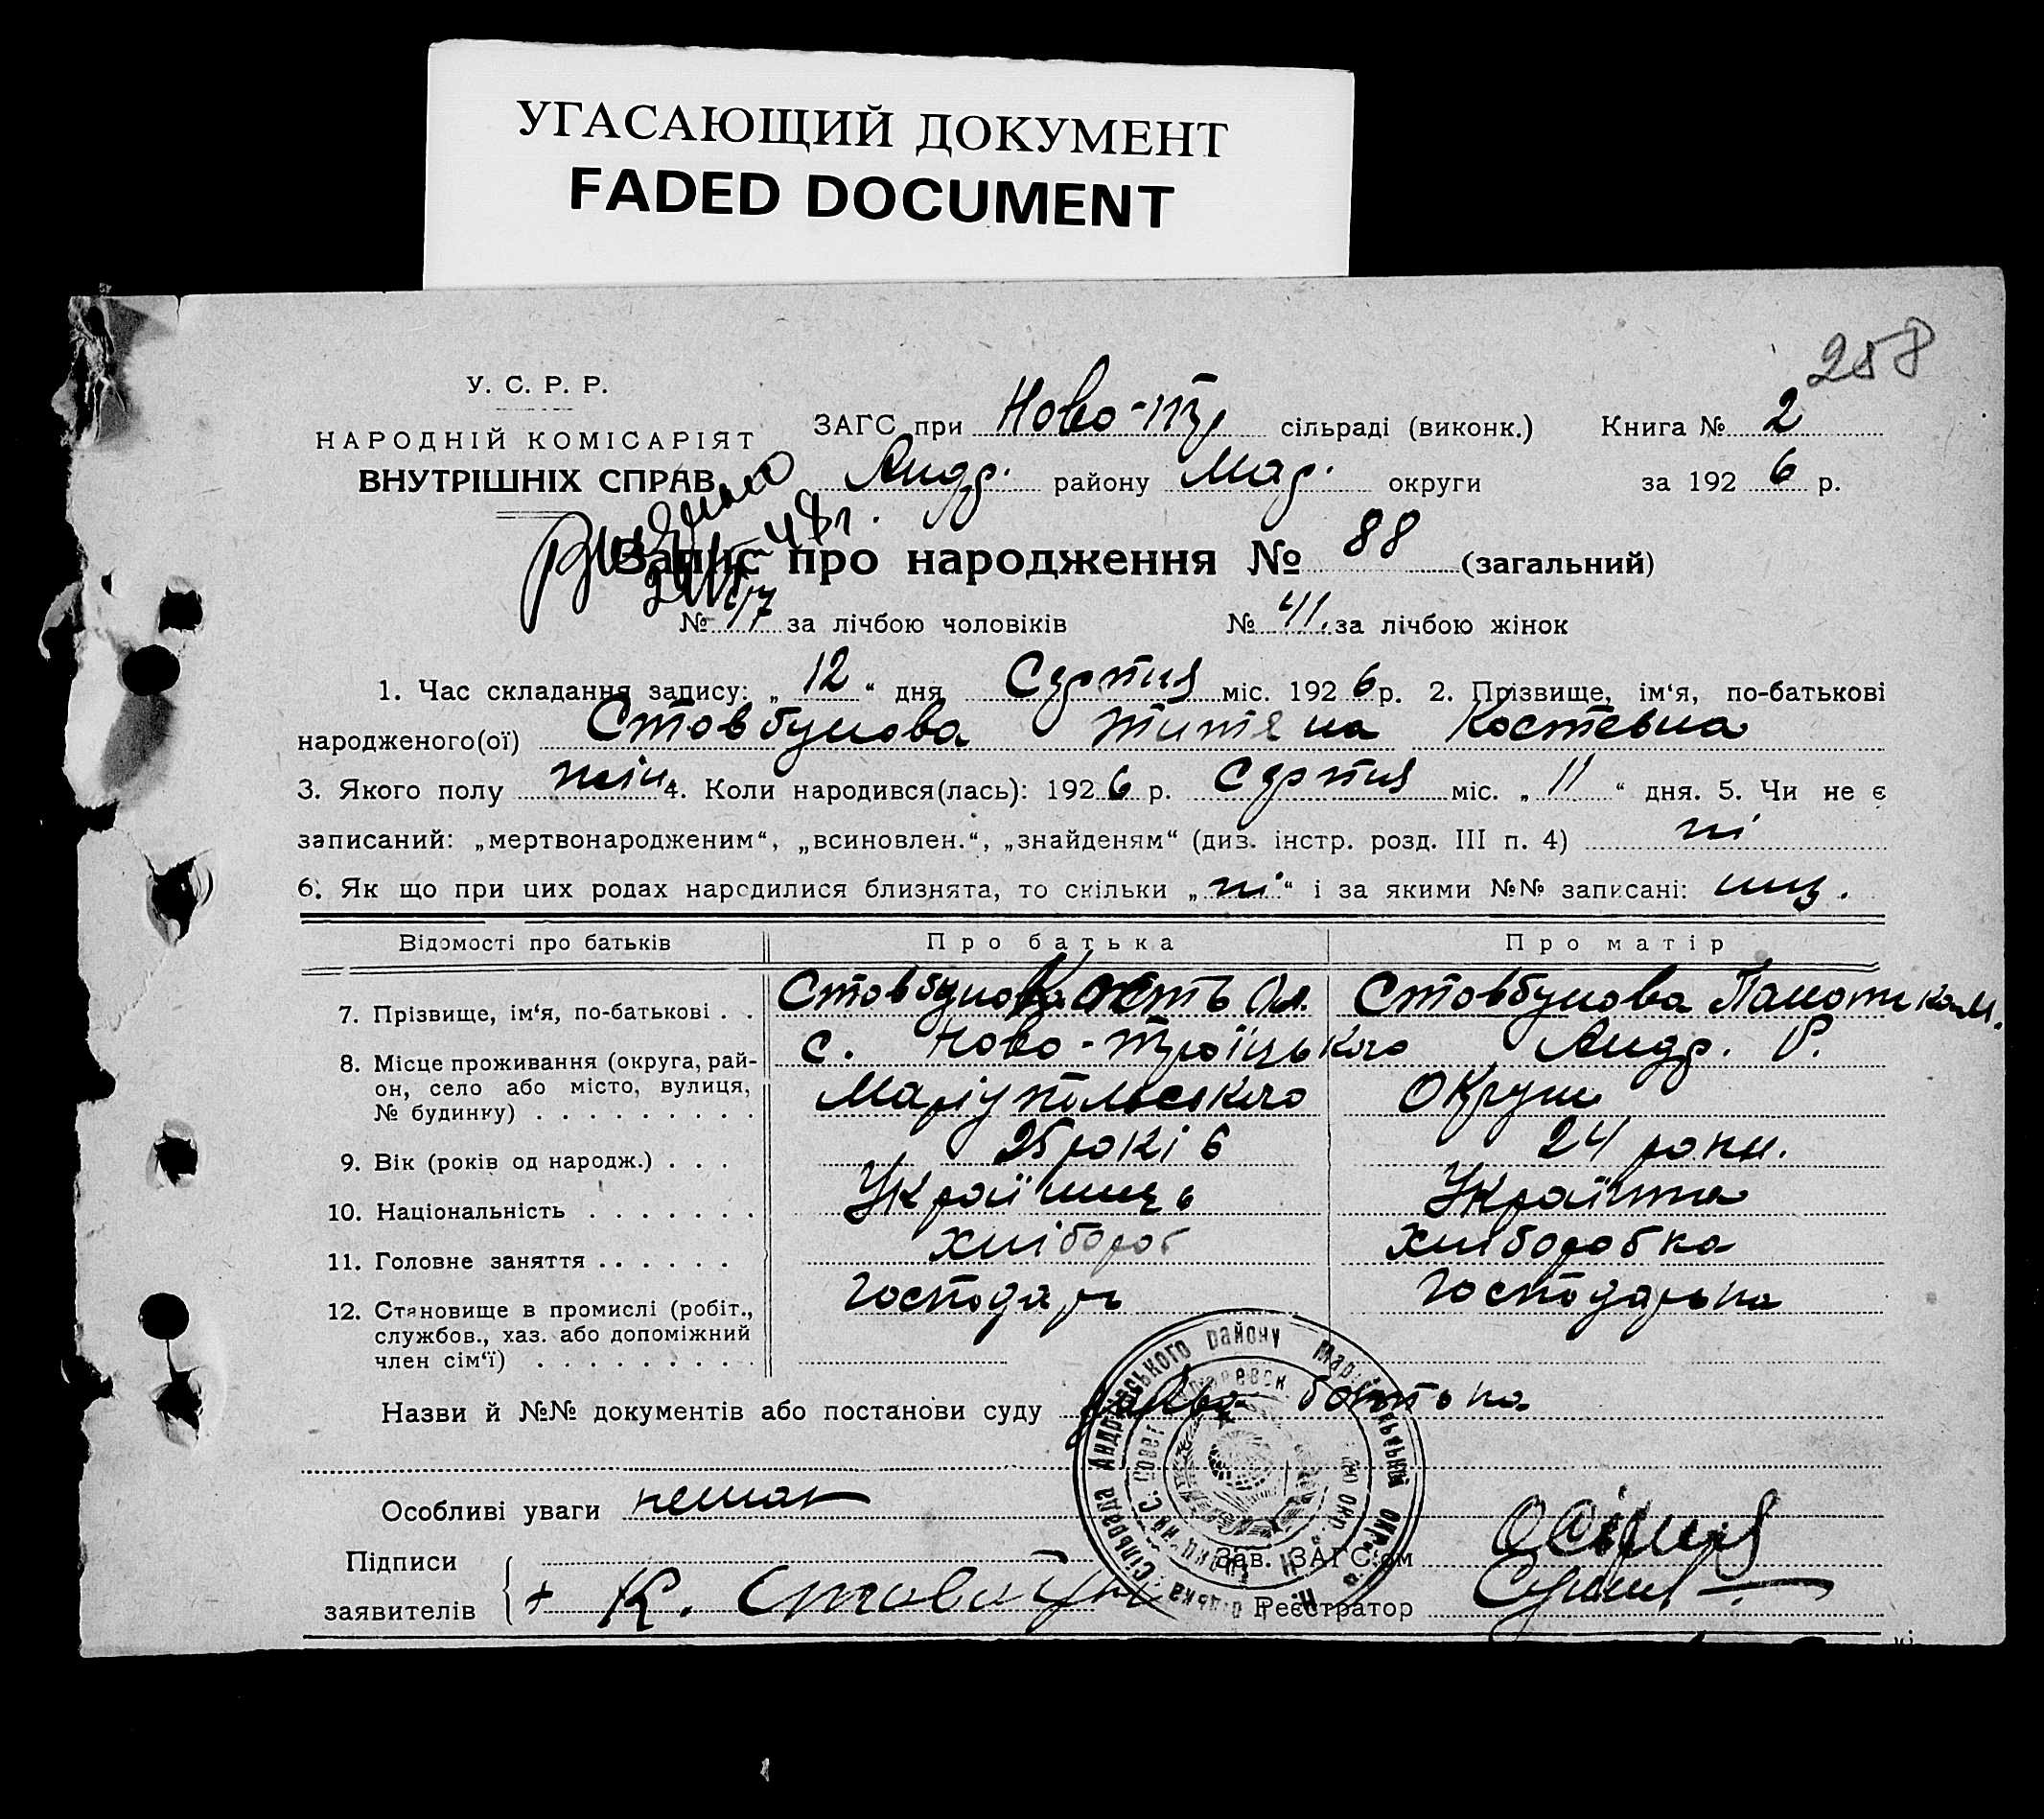 УГАСАЮЩИЙ ДОКУМЕНТ
FADED DOCUMENT
258
У. С. Р. Р.
НАРОДНІЙ КОМІСАРІЯТ
ВНУТРІШНІХ СПРАВ
ЗАГС при Ново-Тр сільраді (виконк.) Книга № 2
Андр. району Мар. округи за 1926 р.
Запис про народження № 88 (загальний)
№ 47 за лічбою чоловіків № 41. за лічбою жінок
1. Час складання запису: „12“ дня Серпня міс. 1926 р. 2. Прізвище, ім‘я, по-батькові
народженого(ої) Стовбунова Титяна Костевна
3. Якого полу жін 4. Коли народився(лась): 1926 р. Серпня міс. „11“ дня. 5. Чи не є
записаний: „мертвонародженим“, „всиновлен.“, „знайденям“ (див. інстр. розд. III п. 4) ні
6. Як що при цих родах народилися близнята, то скільки „ні“ і за якими №№ записані:
Відомості про батьків Про батька Про матір
7. Прізвище, ім‘я, по-батькові . . Стовбунова Кость Стовбунова
8. Місце проживання (округа, рай-
он, село або місто, вулиця,
№ будинку) . . . . . . . . .
с. Ново-Троїцького Андр. Р.
Маріупольського Округи
9. Вік (років од народж.) . . . 25 років 24 роки.
10. Національність . . . . . . . Українець Українка
11. Головне заняття . . . . . . хлібороб хліборобка
12. Становище в промислі (робіт.,
службов., хаз. або допоміжний
член сім‘ї) . . . . . . . . .
господарь господарька
Назви й №№ документів або постанови суду батька
Особливі уваги немає
Підписи
заявителів
+ К. Стовбун
Зав. ЗАГС‘ом
Реєстратор
сільрада Андріївського району Маріупільської округи